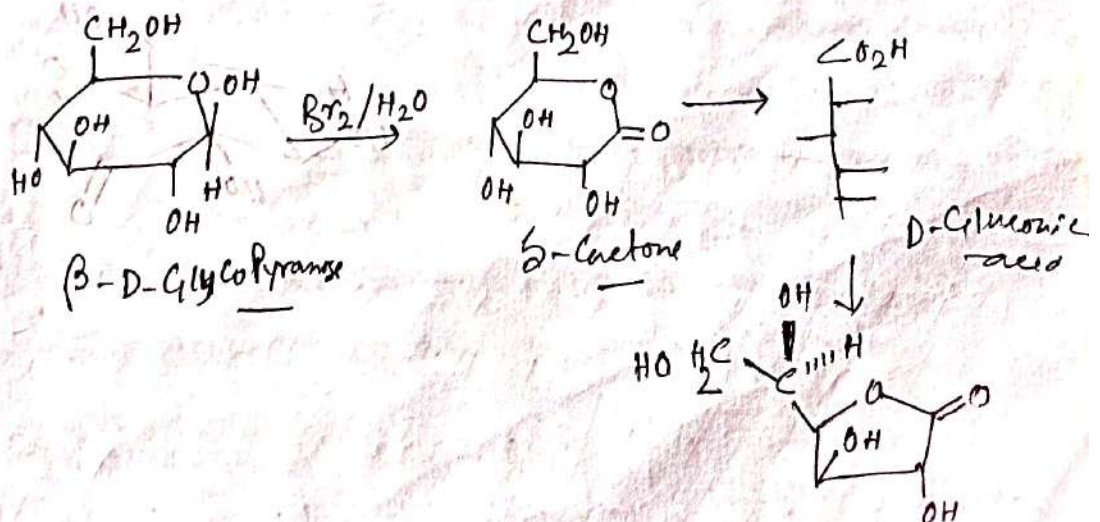 CH2OH
O OH
OH
HO
H
OH
β-D-GlycoPyranose
Br2/H2O
CH2OH
O
OH
=O
OH
OH
δ-Lactone
CO2H
D-Gluconic
acid
OH
HO H2C C H
O O
OH
OH